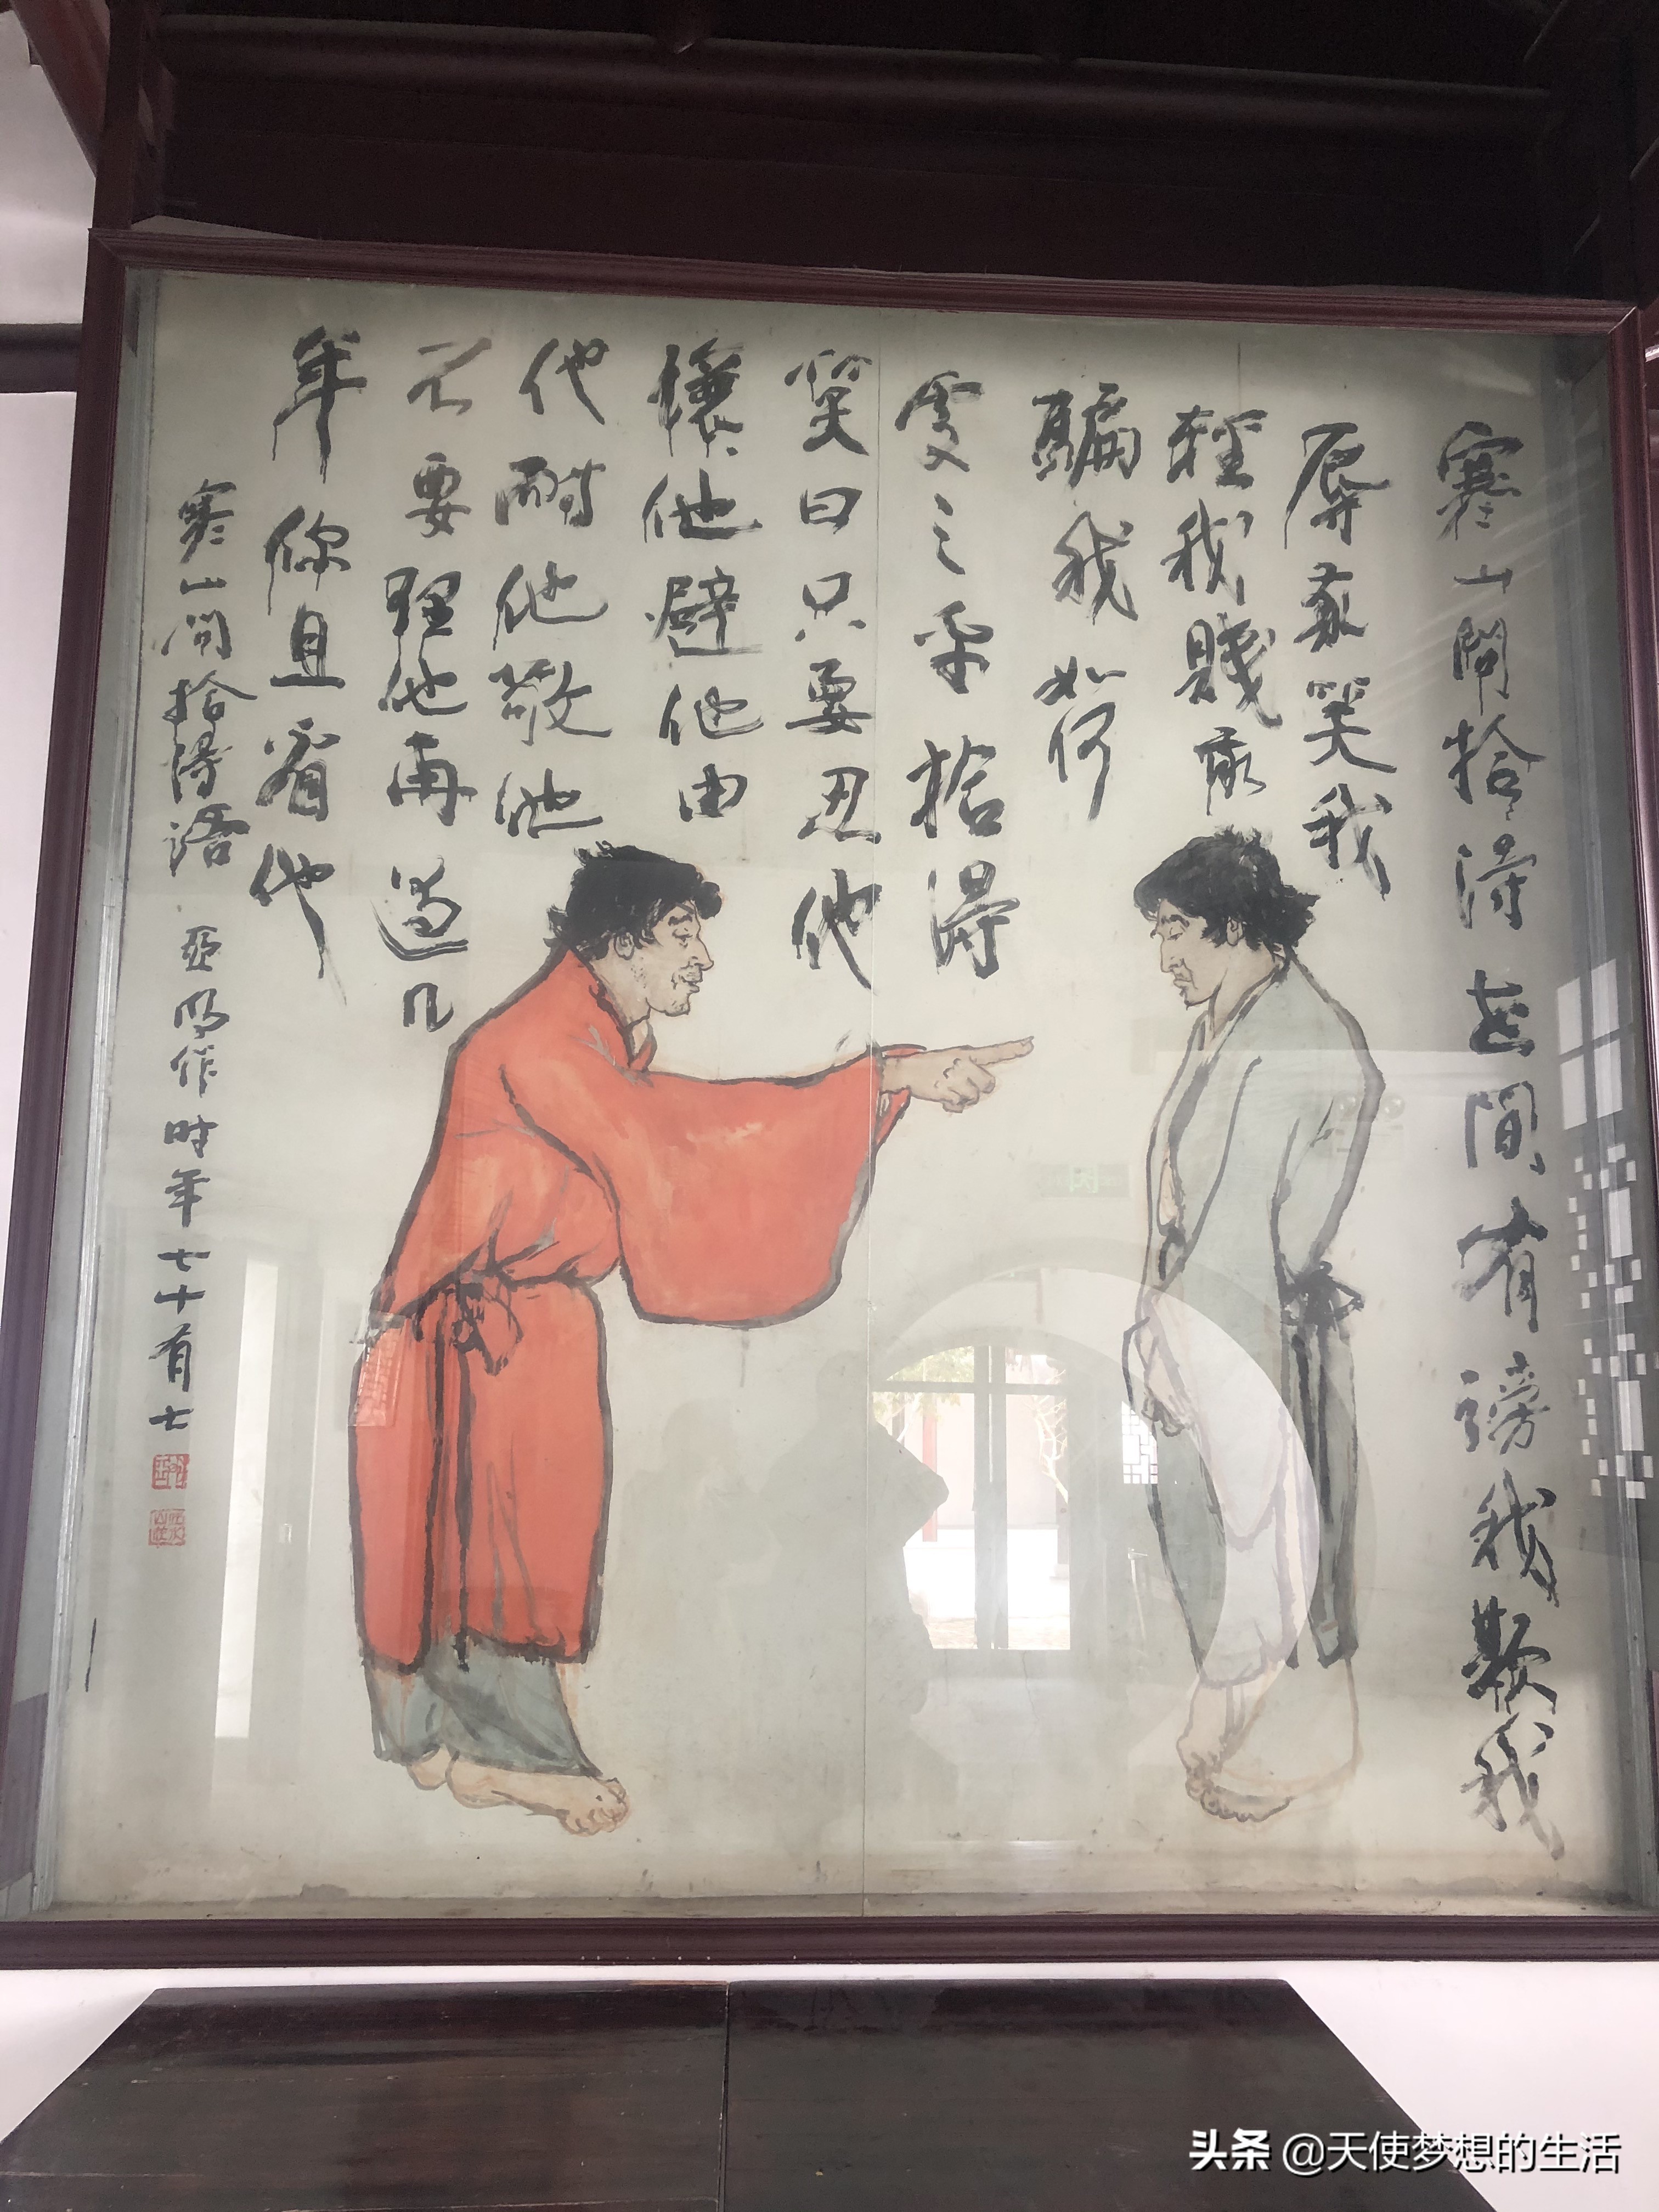 寒山問拾得世間有謗我欺我
辱我笑我
輕我賤我
騙我如何
處之乎拾得
笑曰只要忍他
讓他避他由
他耐他敬他
不要理他再過几
年你且看他
寒山问拾得语 亚明作时年七十有七
头条 @天使梦想的生活